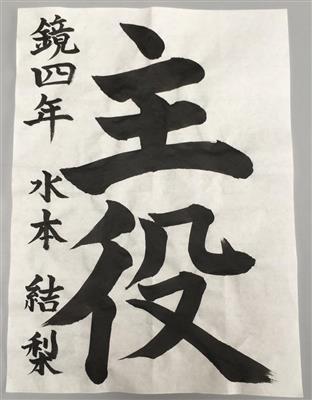 主役
鏡四年 水本 結梨